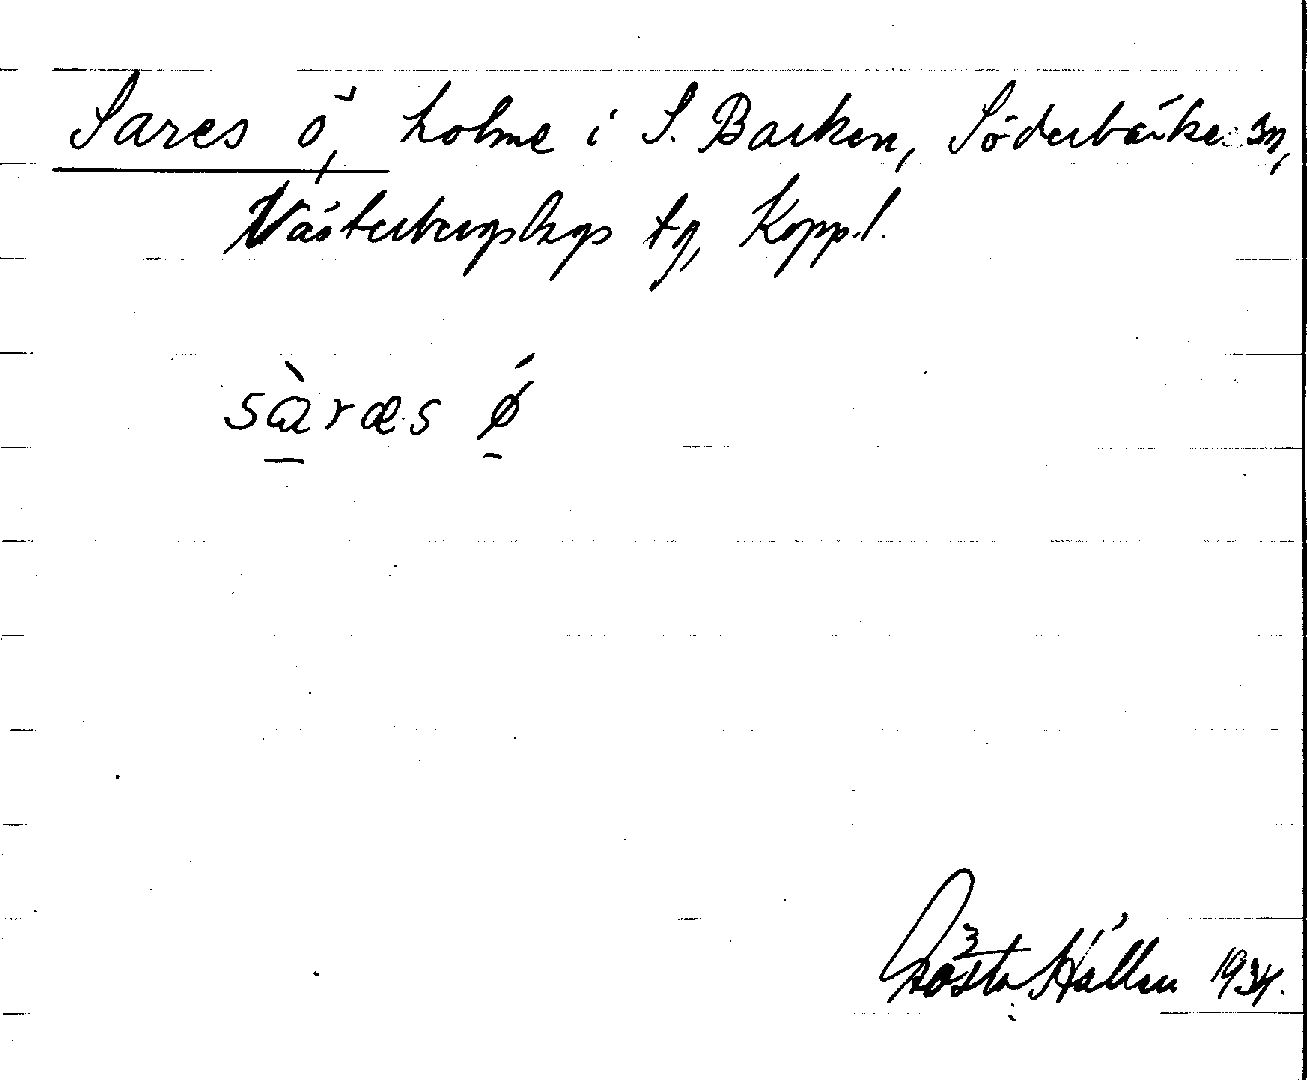 Sares ö, holme i S. Barken, Söderbärke sn,
Västerbergslags tg, Kopp.l.
sàræs ǿ
Gösta Hallén 1934.